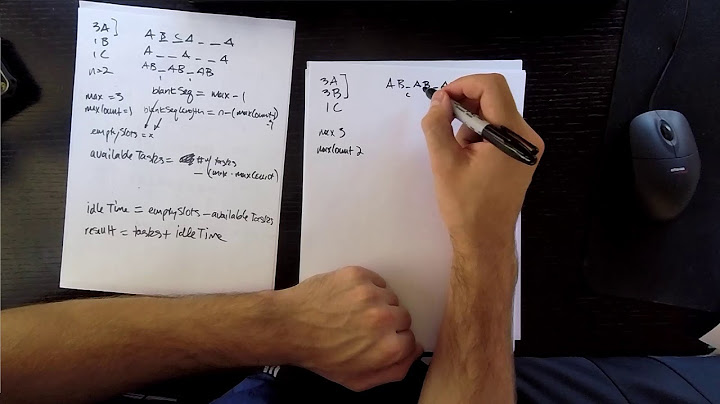 3A]
1B
1C
n=2
A B C A _ _ A
A _ _ A _ _ A
AB _ AB _ AB
blankSeq = max - 1
max = 3
maxCount=1
blankSeqLength = n-(maxCount-1)
emptySlots = x
availableTasks = # of tasks
- (max · maxCount)
idleTime = emptySlots - availableTasks
result = tasks + idleTime
3A]
3B]
1C
AB _ AB _ A
C
max 3
maxCount 2